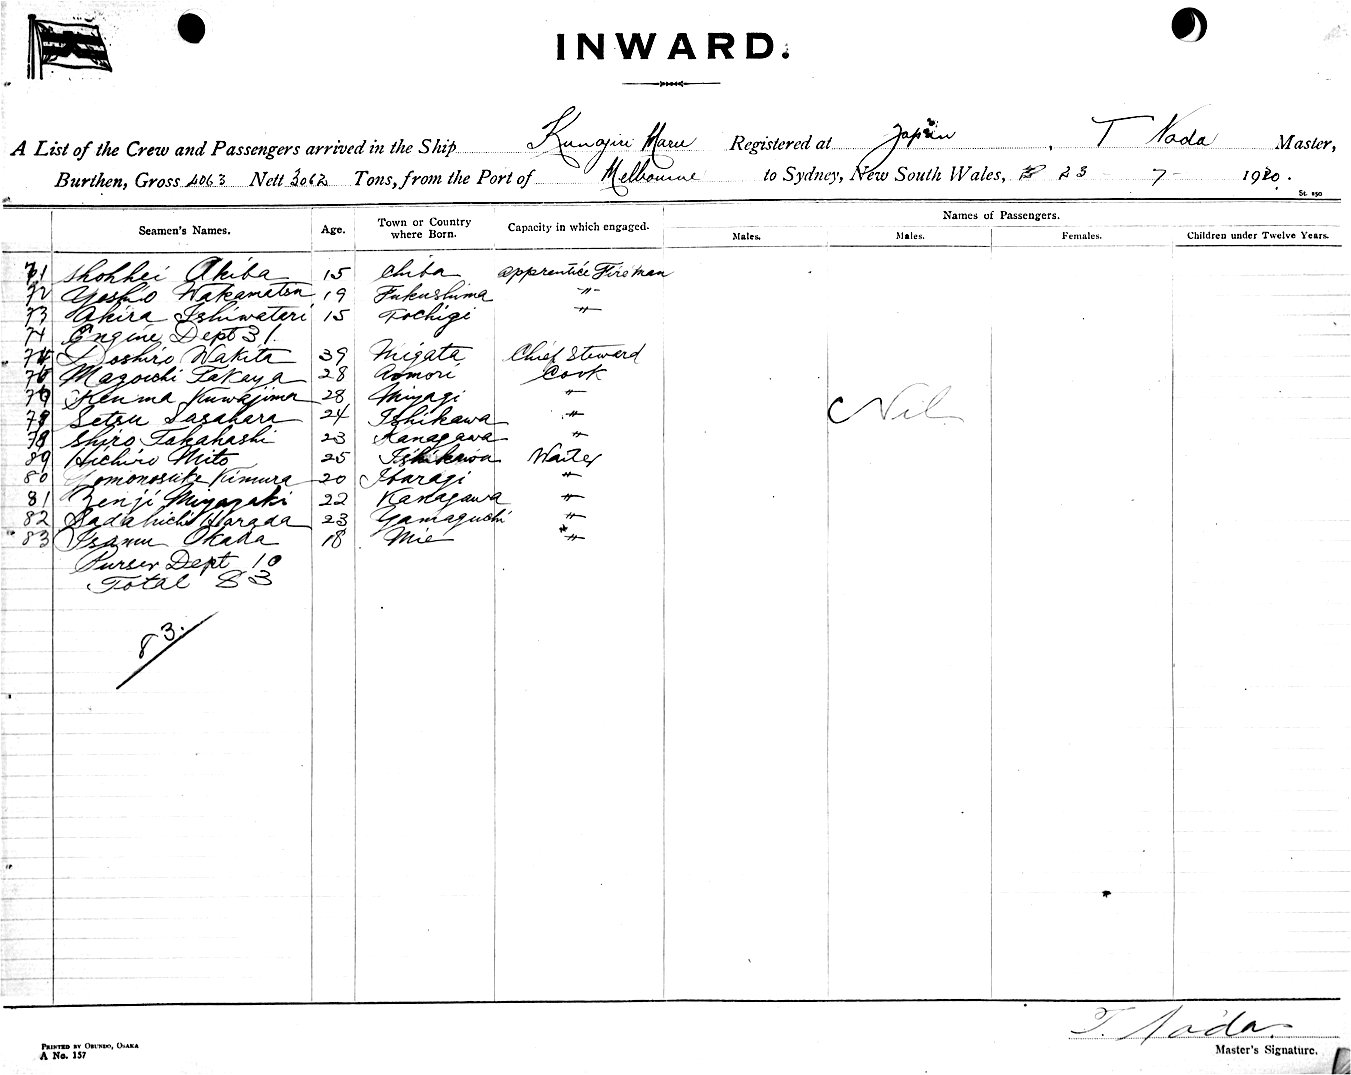 INWARD.
A List of the Crew and Passengers arrived in the Ship Maru Registered at Japan, T Noda Master,
Burthen, Gross 4063 Nett 3062 Tons, from the Port of Melbourne to Sydney, New South Wales, 23 - 7 - 1920.
St. 190
Seamen's Names. Age. Town or Country where Born. Capacity in which engaged. Names of Passengers.
Males. Males. Females. Children under Twelve Years.
71 Shohhei Akiba 15 Chiba apprentice Fireman
72 Yoshio Wakamatsu 19 Fukushima "
73 Akira Ishiwateri 15 Tochigi "
74 Engine Dept 31.
74 Doshiro Wakita 39 Niigata Chief Steward
75 Magoichi Takeya 28 Aomori Cook
76 Kenma Kuwajima 28 Miyagi "
Nil
Setsu Sasahara 24 Ishikawa "
Shiro Takahashi 23 Kanagawa "
Hichiro Mito 25 Ishikawa Waiter
80 Tomonosuke Kimura 20 Ibaragi "
81 Zenji Miyazaki 22 Kanagawa "
82 Sadahichi Harada 23 Yamaguchi "
83 Isamu Okada 18 Mie "
Purser Dept 10
Total 83
83.
T. Noda.
Master's Signature.
PRINTED BY OBUNDO, OSAKA
A No. 157